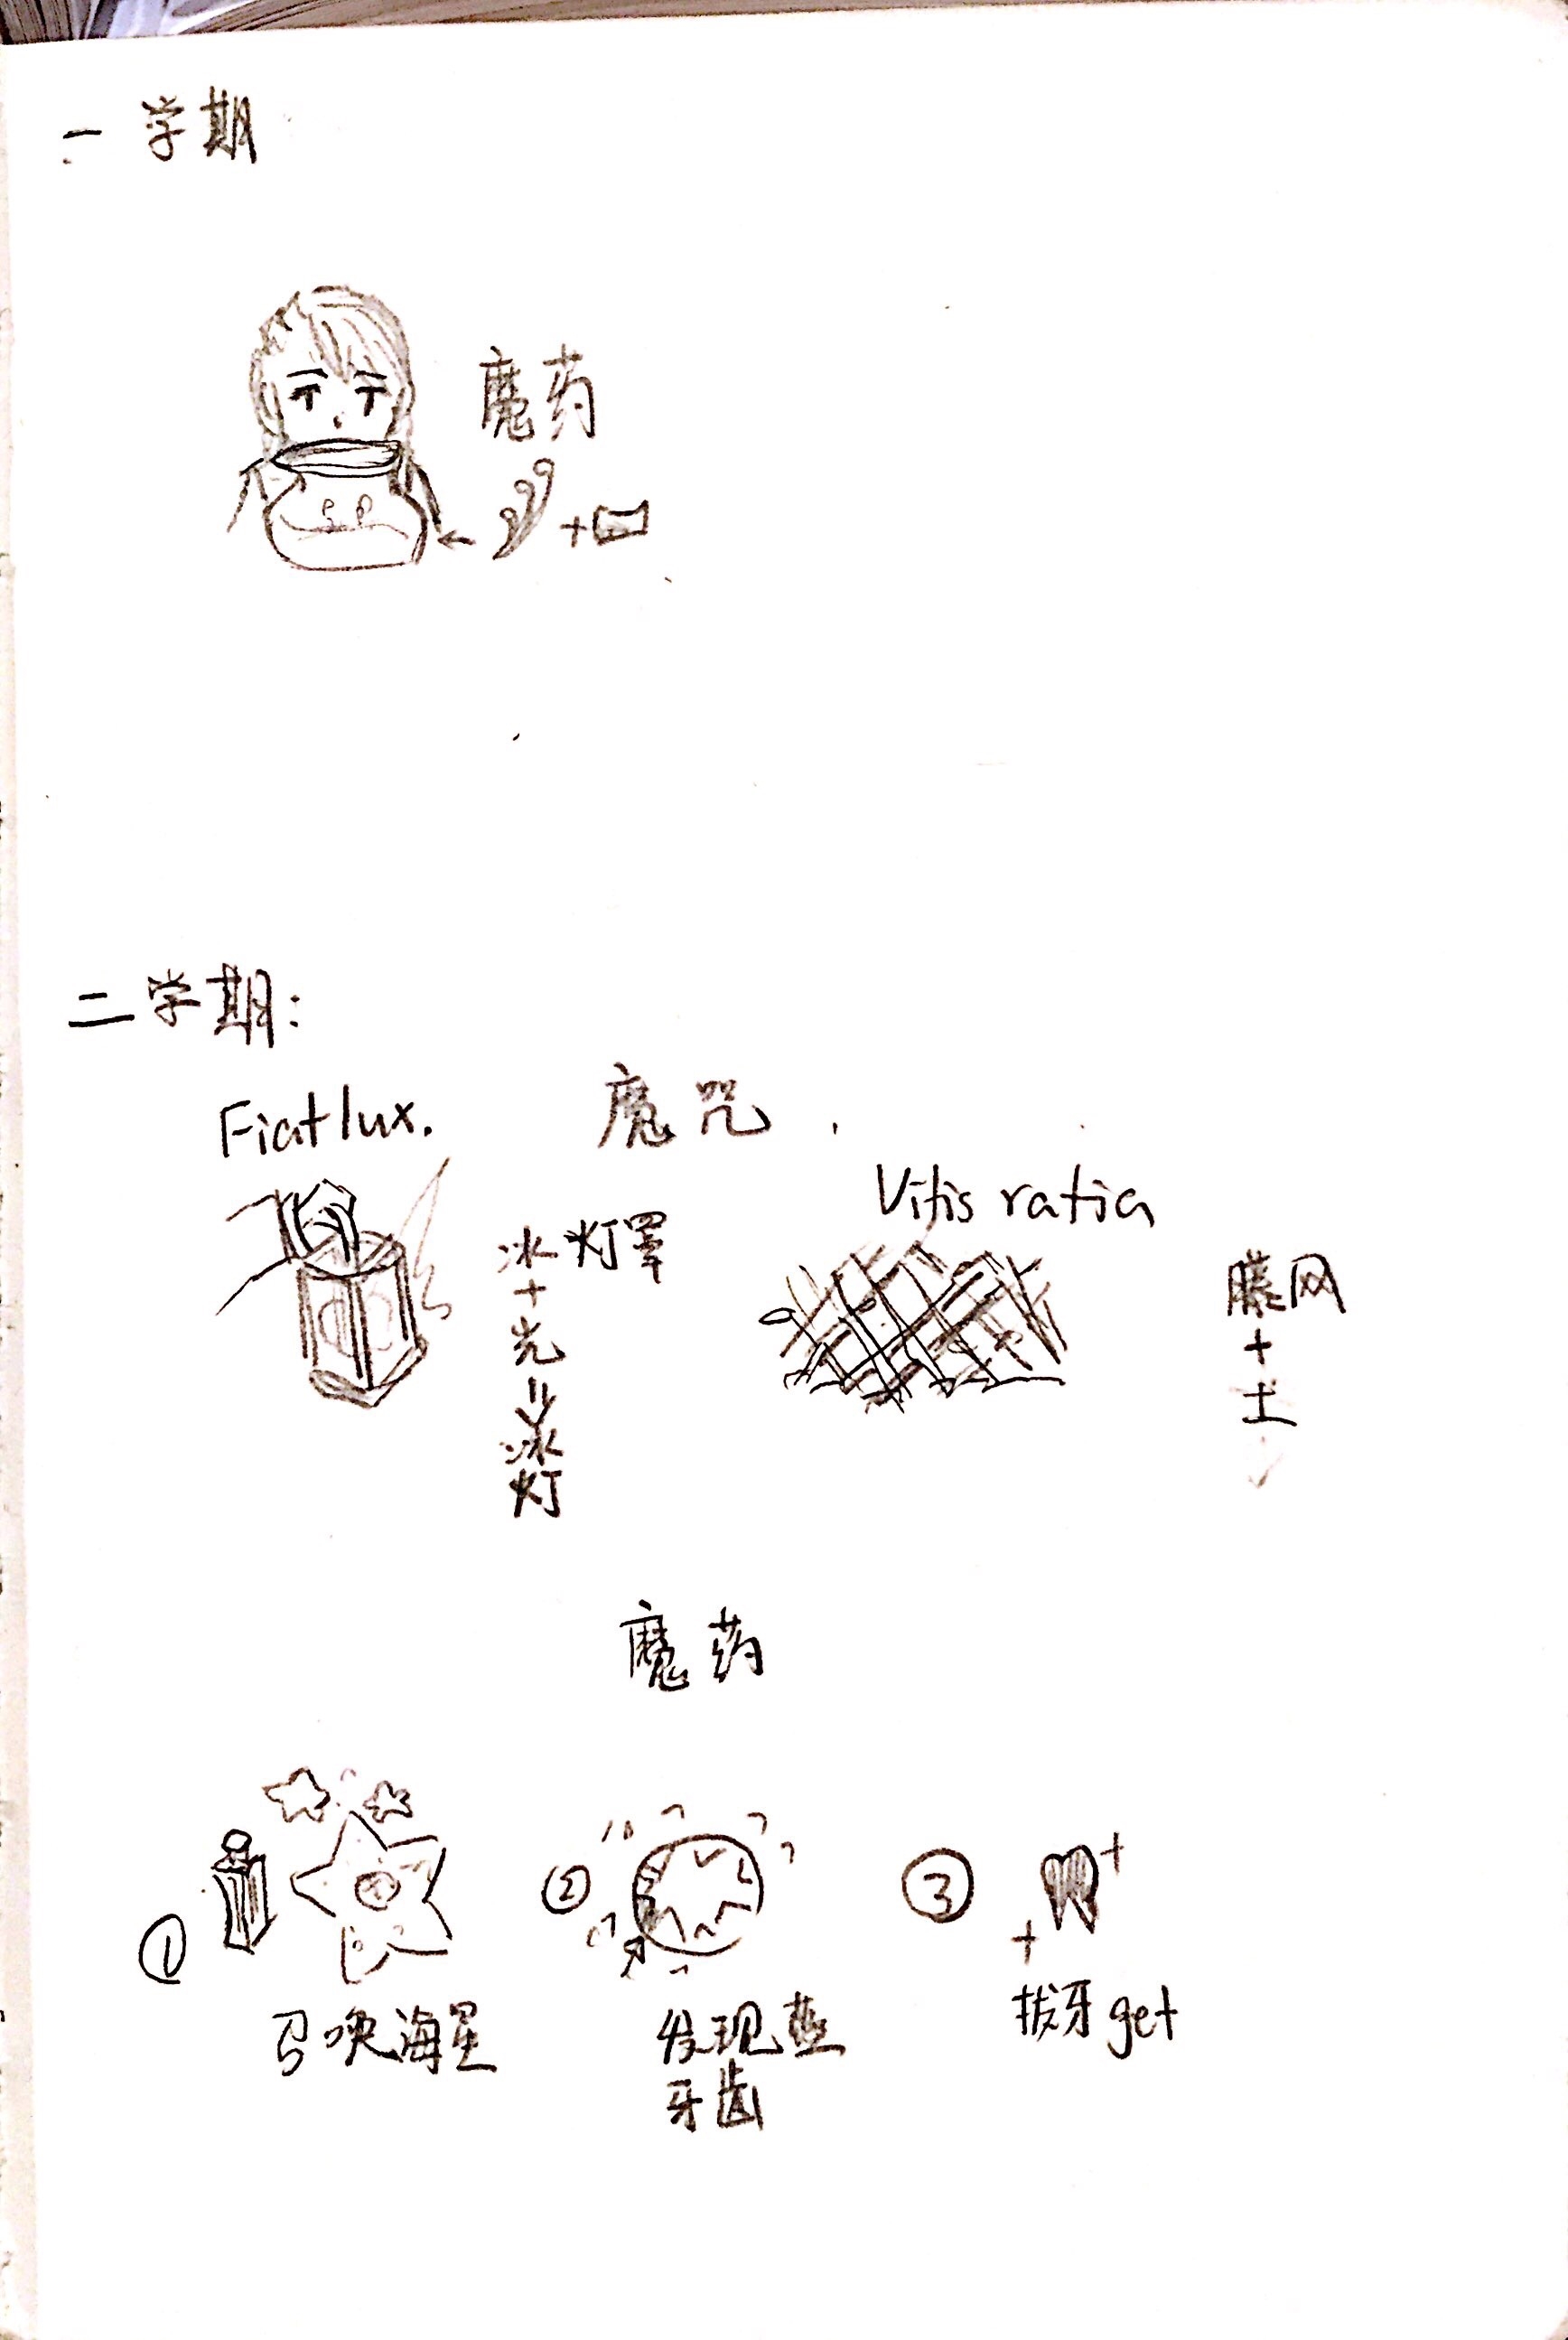 一学期
魔药
+
二学期:
Fiat lux.
魔咒
Vitis ratia
冰灯罩
+
光
冰
灯
藤网
+
土
魔药
①
②
③
召唤海星
发现
牙齿
拔牙get